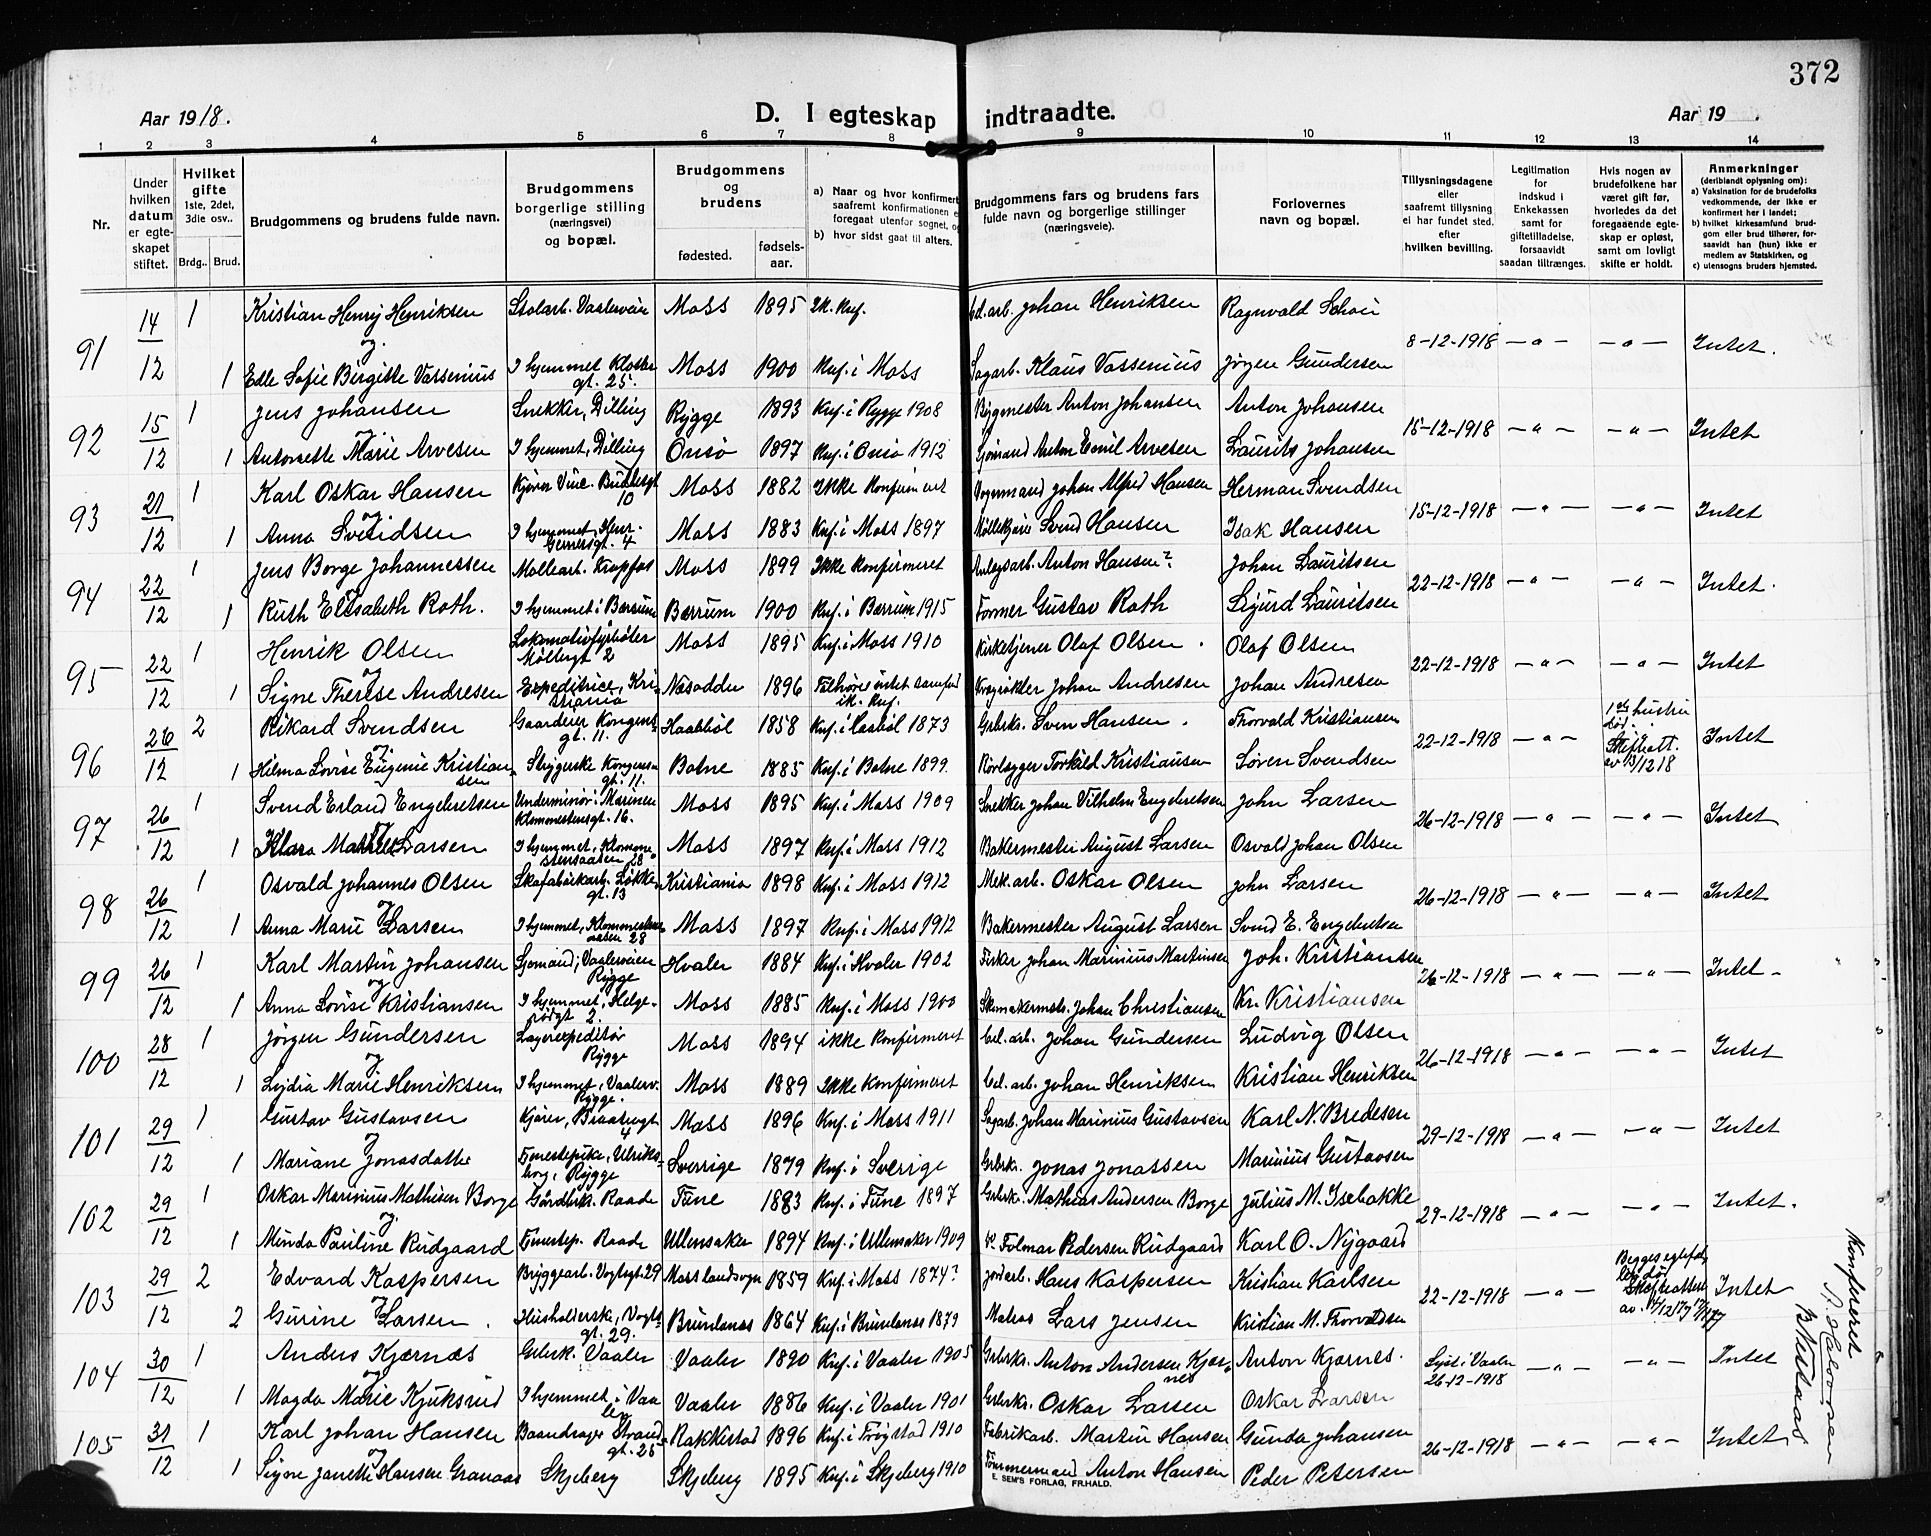 372
Aar 1918. D. I egteskap indtraadte. Aar 19 .
1 2 3 4 5 6 7 8 9 10 11 12 13 14
Nr.
Under hvilken datum er egteskapet stiftet.
Hvilket gifte 1ste, 2det, 3die osv..
Brdg.. Brud.
Brudgommens og brudens fulde navn.
Brudgommens borgerlige stilling (næringsvei) og bopæl.
Brudgommens og brudens
fødested. fødselsaar.
a) Naar og hvor konfirmert
saafremt konfirmationen e
foregaat utenfor sognet, og
b) hvor sidst gaat til alters.
Brudgommens fars og brudens fars fulde navn og borgerlige stillinger (næringsveie).
Forlovernes navn og bopæl.
Tillysningsdagene eller saafremt tillysning ei har fundet sted. efter hvilken bevilling.
Legitimation for indskud i Enkekassen samt for giftetilladelse, forsaavidt saadan tiltrænges.
Hvis nogen av brudefolkene har været gift før, hvorledes da det foregaaende egteskap er opløst, samt om lovligt skifte er holdt.
Anmerkninger (deriblandt oplysning om): a) Vaksination for de brudefolks vedkommende, der ikke er konfirmert her i landet; b) hvilket kirkesamfund brudgom eller brud tilhører, forsaavidt han (hun) ikke er medlem av Statskirken, og c) utensogns bruders hjemsted.
91 14/12 1 Kristian Henry Henriksen Stolarb. Vaalerveien Moss 1895 Johan Henriksen Ragnvald 8-12-1918 — " — — " — Intet.
og
1 Edle Sofie Birgitte Vassenius I hjemmet Kloster gt. 25. Moss 1900 Knf. i Moss Sagarb. Klaus Vassenius Jørgen Gundersen
92 15/12 1 Jens Johansen Snekker, Dilling Rygge 1893 Knf. i Rygge 1908 Bygmester Anton Johansen Anton Johansen 15-12-1918 — " — — " — Intet
og
1 Antonette Marie Arvesen I hjemmet, Dilling Onsø 1897 Knf. i Onsø 1912 Sjömand Anton Emil Arvesen Laurits Johansen
93 21/12 1 Karl Oskar Hansen 10 Moss 1882 Ikke konfirmert Vognmand Johan Alfred Hansen Herman Svendsen 15-12-1918 — " — — " — Intet
og
1 Anna Svendsen I hjemmet, Henr. Gernersgt. 4 Moss 1883 Knf. i Moss 1897 Svend Hansen Isak Hansen
94 22/12 1 Jens Borge Johannessen Møllearb. Krapfos Moss 1899 Ikke konfirmeret Anton Hansen? Johan Lauritsen 22-12-1918 — " — — " — Intet.
1 Ruth Elisabeth Roth. I hjemmet i Bærum Bærum 1900 Knf. i Bærum 1915 Former Gustav Roth Sigurd Lauritsen
95 22/12 1 Henrik Olsen Lokomotivfyrbøter Møllergt 2 Moss 1895 Knf. i Moss 1910 Kirketjener Olaf Olsen . Olaf Olsen 22-12-1918 — " — — " — Intet
og
1 Signe Therese Andresen Expeditrice, Kristiania Nesodden 1896 ik. Knf. Johan Andresen Johan Andresen
96 26/12 2 Rikard Svendsen Gaardeier Kongens gt. 11. Haabøl 1858 Knf. i Haabøl 1873 Grbrkr. Sven Hansen . Thorvald Kristiansen 22-12-1918 — " — 1ste hustru død. Skifteatt. av 13/12 18 Intet
og
1 Hilma Lovise Eugenie Kristiansen Strygerske Kongensgt. 11. Botne 1885 Knf. i Botne 1899. Rørlægger Torkild Kristiansen Søren Svendsen
97 26/12 1 Svend Erland Engebretsen Underminör i Marinen Klommestensgt. 16. Moss 1895 Knf. i Moss 1909 Snekker Johan Vilhelm Engebretsen John Larsen 26-12-1918 — " — — " — Intet
og
1 Klara Larsen I hjemmet, Klommestensaasen 28. Moss 1897 Knf. i Moss 1912 Bakermester August Larsen Osvald Johan Olsen
98 26/12 1 Osvald Johannes Olsen Skofabrikarb. Løkkegt. 13 Kristiania 1898 Knf. i Moss 1912 Mek. arb. Oskar Olsen John Larsen 26-12-1918 — " — — " — Intet
og
1 Anna Marie Larsen I hjemmet, Klommestensaasen 28 Moss 1897 Knf. i Moss 1912 Bakermester August Larsen Svend E. Engebretsen
99 26/12 1 Karl Martin Johansen Sjømand, Vaalerveien Rygge Hvaler 1884 Knf. i Hvaler 1902 Fisker Johan Marinius Martinsen Joh. Kristiansen 26-12-1918 — " — — " — Intet -
og
1 Anna Lovise Kristiansen I hjemmet, Helgerødgt 2. Moss 1885 Knf. i Moss 1900 Skomakermstr. Johan Christiansen Kr. Kristiansen
100 28/12 1 Jørgen Gundersen Lagerexpeditör Rygge Moss 1894 ikke konfirmeret Cel. arb. Johan Gundersen Ludvig Olsen 26-12-1918 — " — — " — Intet
og
1 Lydia Marie Henriksen I hjemmet, Vaalerv. Rygge. Moss 1889 Ikke konfirmeret Cel. arb. Johan Henriksen Kristian Henriksen
101 29/12 1 Gustav Gustavsen Kjører, 4 Moss 1896 Knf. i Moss 1911 Sagarb. Johan Marinius Gustavsen Karl N. Bredesen 29-12-1918 — " — — " — Intet
og
1 Mariane Jonasdatter Tjenestepike, Ulriksborg, Rygge Sverrige 1879 Knf. i Sverige Grbrkr. Jonas Jonassen Marinius Gustavsen
102 29/12 1 Oskar Marinius Mathisen Borge Gårdbrk. Raade Tune 1883 Knf. i Tune 1897 Grbrkr. Mathias Andersen Borge Julius M. Isebakke 29-12-1918 — " — — " — Intet.
og.
1 Minda Pauline Rudgaard Tjenestep. Raade Ullensaker 1894 Knf. i Ullensaker 1909 Folmar Pedersen Rudgaard Karl O. Nygaard
103 29/12 2 Edvard Kaspersen Bryggearb. Vogtsgt. 29 Moss landsogn 1859 Knf. i Moss 1874? Jordarb. Hans Kaspersen Kristian Karlsen 22-12-1918 — " — Begges egtefæller død. Skifteattest Intet
og
2 Gurine Larsen . Husholderske, Vogtsgt. 29. Brunlanes 1864 Knf. i Brunlanes 1879 Matros Lars Jensen Kristian M. Thorvaldsen
104 30/12 1 Anders Kjærnes Grbrk. Vaaler Vaaler 1890 Knf. i Vaaler 1905 Grbrkr. Anton Andersen Kjærnes Anton Kjærnes. Lyst i Vaaler 26-12-1918 — " — — " — Intet
og
1 Magda Marie Kjuksrud I hjemmet, i Vaaler Vaaler 1886 Knf. i Vaaler 1901 Grbrkr. Oskar Larsen Oskar Larsen
105 31/12 1 Karl Johan Hansen Strandgt. 25 Rakkestad 1896 Knf. i Trøgstad 1910 Fabrikarb. Martin Hansen Gunda Johansen 26-12-1918 — " — — " — Intet
og
1 Signe Janette Hansen Granaas Skjeberg Skjeberg 1895 Knf. i Skjeberg 1910 Tømmermand Anton Hansen Peder Petersen
E. SEM'S FORLAG, FR.HALD.
Konfereret